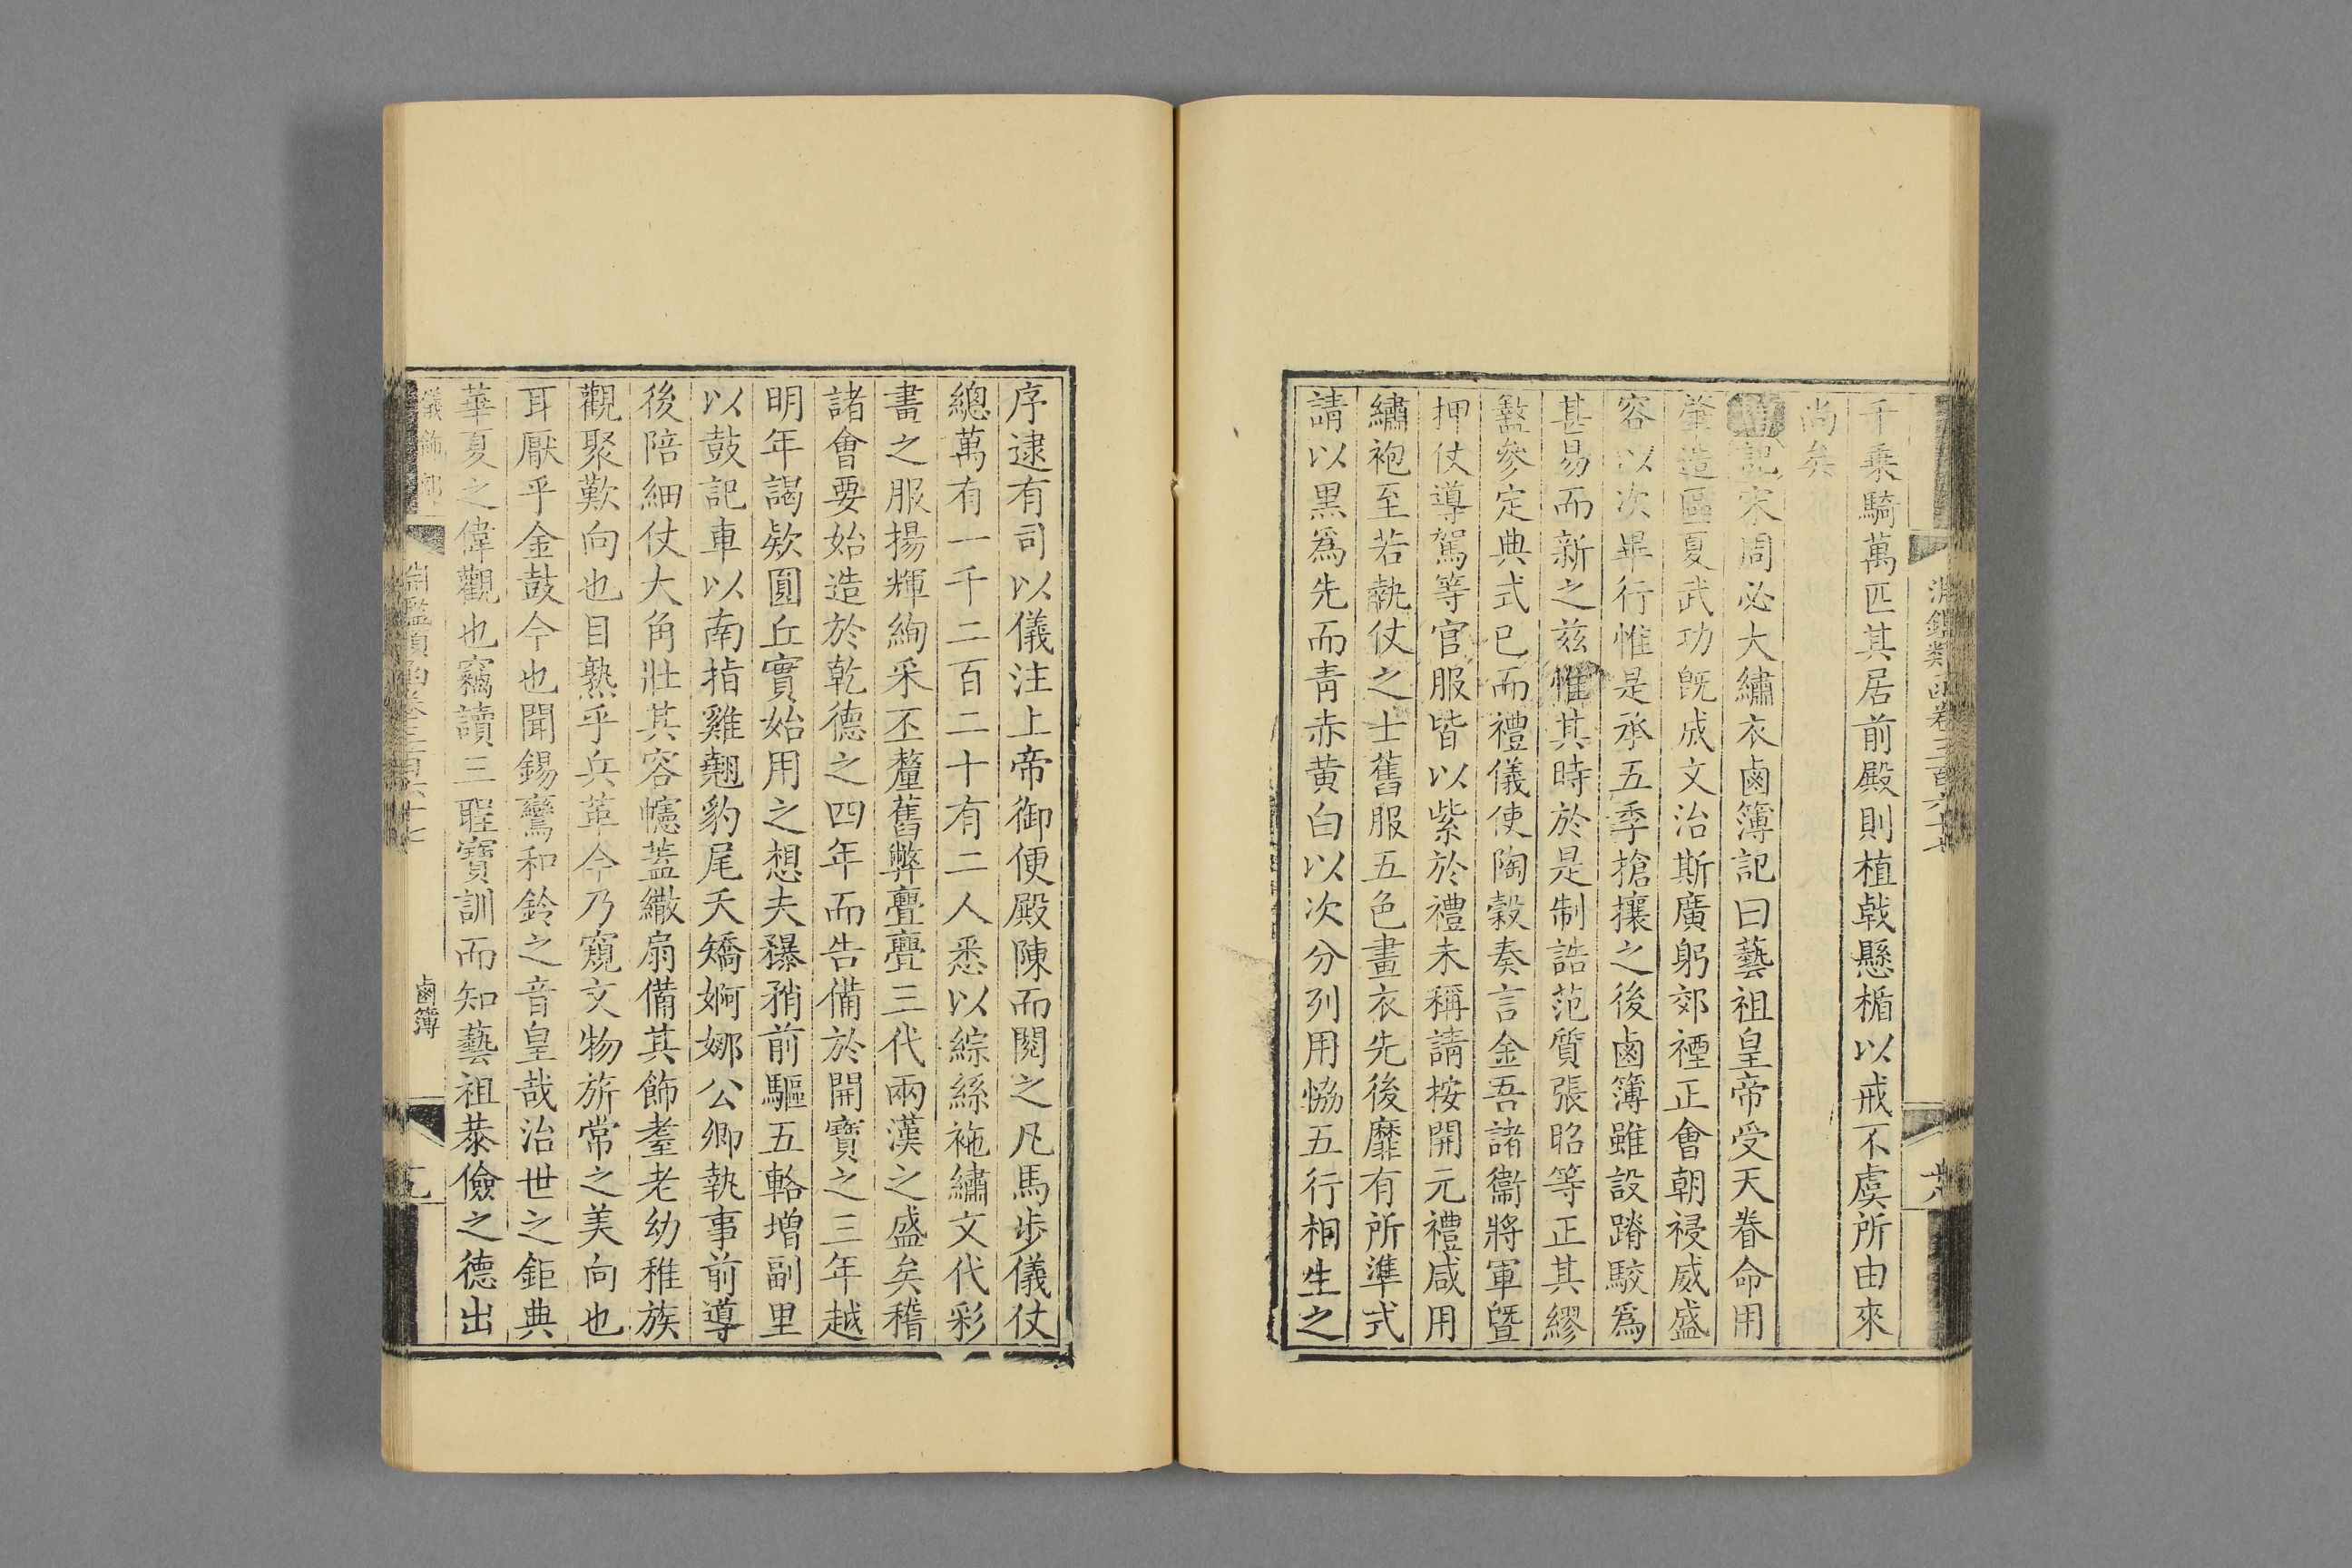 淵鑑類函卷三百六十七
千乗騎萬匹其居前殿則植戟懸楯以戒不虞所由來
尚矣
增記宋周必大繡衣鹵簿記曰藝祖皇帝受天眷命用
肇造區夏武功旣成文治斯廣躬郊禋正會朝祲威盛
容以次畢行惟是承五季搶攘之後鹵簿雖設踳駮爲
甚易而新之茲惟其時於是制誥范質張昭等正其繆
盭參定典式已而禮儀使陶穀奏言金吾諸衞將軍暨
押仗導駕等官服皆以紫於禮未稱請按開元禮咸用
繡袍至若執仗之士舊服五色畫衣先後靡有所準式
請以黒爲先而青赤黄白以次分列用恊五行相生之
序逮有司以儀注上帝御便殿陳而閱之凡馬歩儀仗
總萬有一千二百二十有二人悉以綜絲袘繡文代彩
畫之服揚輝絢采丕釐舊弊亹亹三代兩漢之盛矣稽
諸會要始造於乾德之四年而告備於開寶之三年越
明年謁欵圓丘實始用之想夫𤡣矟前驅五輅増副里
以鼓記車以南指雞翹豹尾夭矯婀娜公卿執事前導
後陪細仗大角壯其容幰蓋繖扇備其飾耋老幼稚族
觀聚歎向也目熟乎兵革今乃窺文物旂常之美向也
耳厭乎金鼓今也聞錫鸞和鈴之音皇哉治世之鉅典
華夏之偉觀也竊讀三聖寶訓而知藝祖恭儉之德出
儀飾部
鹵簿